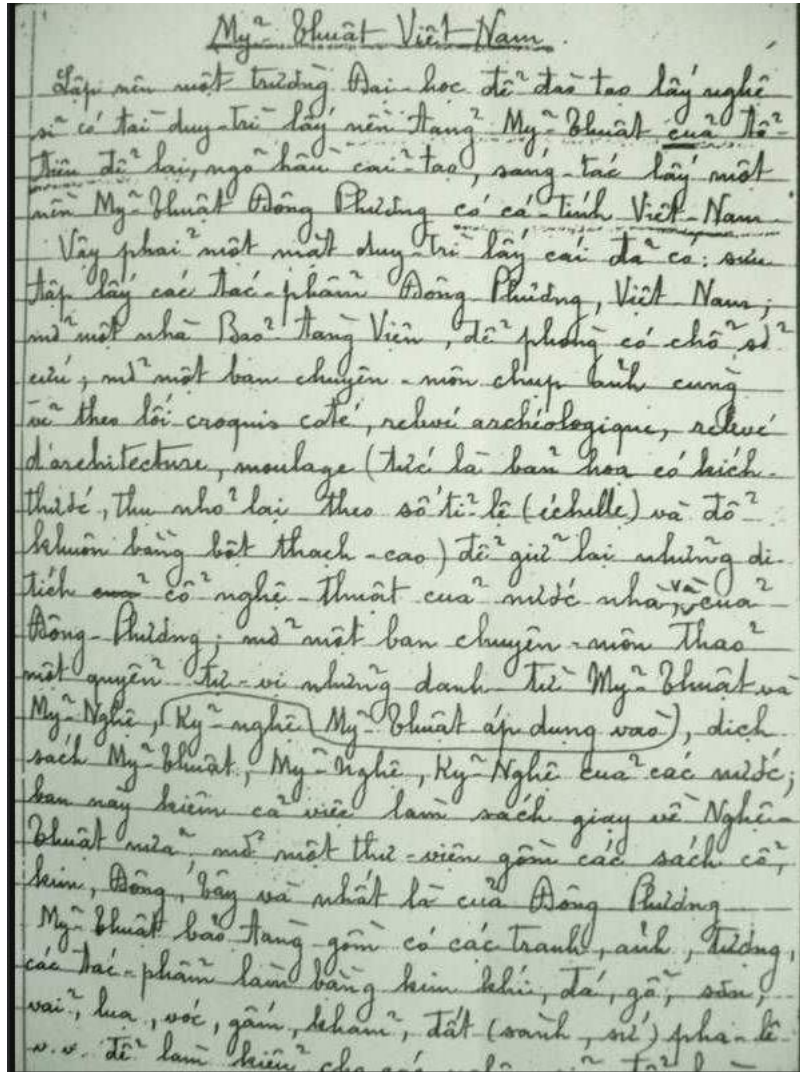 Mỹ-Thuật Việt-Nam.
Lập nên một trường Đại-học để đào tạo lấy nghệ
sĩ có tài duy-trì lấy nền tảng Mỹ-Thuật của tổ-
tiên để lại, ngõ hầu cải-tạo, sáng-tác lấy một
nền Mỹ-Thuật Đông Phương có cá-tính Việt-Nam.
Vậy phải một mặt duy-trì lấy cái đã có: sưu
tập lấy các tác-phẩm Đông Phương, Việt Nam;
mở một nhà Bảo-tàng Viện, để phòng có chỗ sở
cứu; mở một ban chuyên-môn chụp ảnh cùng
vẽ theo lối croquis coté, relevé archéologique, relevé
d'architecture, moulage (tức là bản họa có kích
thước, thu nhỏ lại theo số tỉ-lệ (échelle) và đổ
khuôn bằng bột thạch-cao) để giữ lại những di-
tích cổ nghệ-thuật của nước nhà, và của
Đông-Phương; mở một ban chuyên-môn thảo
một quyển tự-vị những danh từ Mỹ-Thuật và
Mỹ-Nghệ, Kỹ-nghệ (Mỹ-Thuật áp dụng vào), dịch
sách Mỹ-Thuật, Mỹ-Nghệ, Kỹ-Nghệ của các nước;
ban này kiêm cả việc làm sách giạy về Nghệ-
Thuật nữa, mở một thư-viện gồm các sách cổ,
kim, Đông, Tây và nhất là của Đông Phương
Mỹ-Thuật bảo tàng gồm có các tranh, ảnh, tượng,
các tác-phẩm làm bằng kim khí, đá, gỗ, sơn,
vải, lụa, vóc, gấm, khảm, đất (sành, sứ) pha-lê
v.v. để làm kiểu cho các